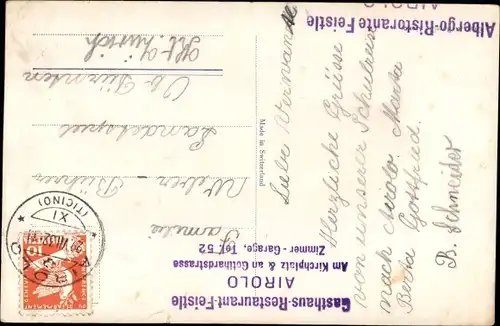 Albergo-Ristorante Feistle
AIROLO
Liebe Verwandte
Herzliche Grüsse
von unserer Schulreise
nach Airolo. Marta
Berta Gottfried.
B. Schneider
Made in Switzerland
Gasthaus-Restaurant-Feistle
AIROLO
Am Kirchplatz & an Gotthardstrasse
Zimmer- Garage. Tel. 52
Familie
Weber - Bührer
Ob Dürnten
Kt. Zürich
AIROLO
XI
(TICINO)
10